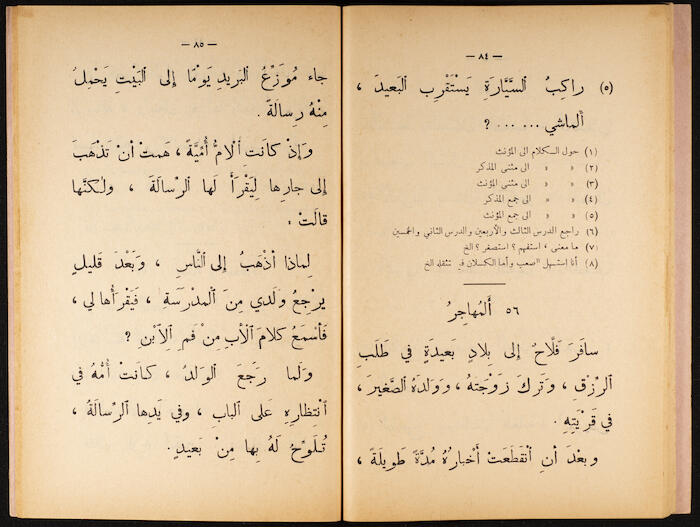 — ٨٤ —
(٥) راكِبُ ٱلسَّيَّارَةِ يَسْتَقْرِبِ ٱلبَعيدَ ،
ٱلماشي ... ... ؟
(١) حول الكلام الى المؤنث
(٢) » » الى مثنى المذكر
(٣) » » الى مثنى المؤنث
(٤) » » الى جمع المذكر
(٥) » » الى جمع المؤنث
(٦) راجع الدرس الثالث والأربعين والدرس الثاني والخمسين
(٧) ما معنى ، استفهم ؟ استصغر ؟ الخ
(٨) أنا استسهل الصعب وأما الكسلان فيستثقله الخ
٥٦ أَلمُهاجِرُ
سافَرَ فَلاَّحٌ إِلى بِلادٍ بَعيدَةٍ في طَلَبِ
ٱلرِّزْقِ ، وَتَركَ زَوْجَتَهُ ، وَوَلَدَهُ ٱلصَّغيرَ ،
في قَرْيَتِهِ .
وبَعْدَ أَنِ ٱنْقَطَعَتْ أَخْبارُهُ مُدَّةً طَويلَةً ،
— ٨٥ —
جاء مُوَزِّعُ ٱلبَريدِ يَوْمًا إِلى ٱلبَيْتِ يَحْمِلُ
مِنْهُ رِسالَةً .
وَإِذْ كانَتِ ٱلأُمُّ أُمِّيَّةً ، هَمتْ أَنْ تَذْهَبَ
إِلى جارِها لِيَقْرَأَ لَها ٱلرِّسالَةَ ، ولٰكنَّها
قالَتْ :
لِماذا أَذْهَبُ إِلى ٱلنَّاسِ ، وَبَعْدَ قَليلٍ
يرْجِعُ وَلَدي مِنَ ٱلمَدْرَسَةِ ، فَيَقْرَأُها لي ،
فَأَسْمَعُ كَلامَ ٱلأَبِ مِنْ فَمِ ٱلاِبْنِ ؟
وَلَما رَجَعَ ٱلوَلَدُ ، كانَتْ أُمُّهُ في
ٱنْتِظارِهِ عَلى ٱلبابِ ، وفي يَدِها ٱلرِّسالَةُ ،
تُلَوِّحُ لَهُ بِها مِنْ بَعيدٍ .